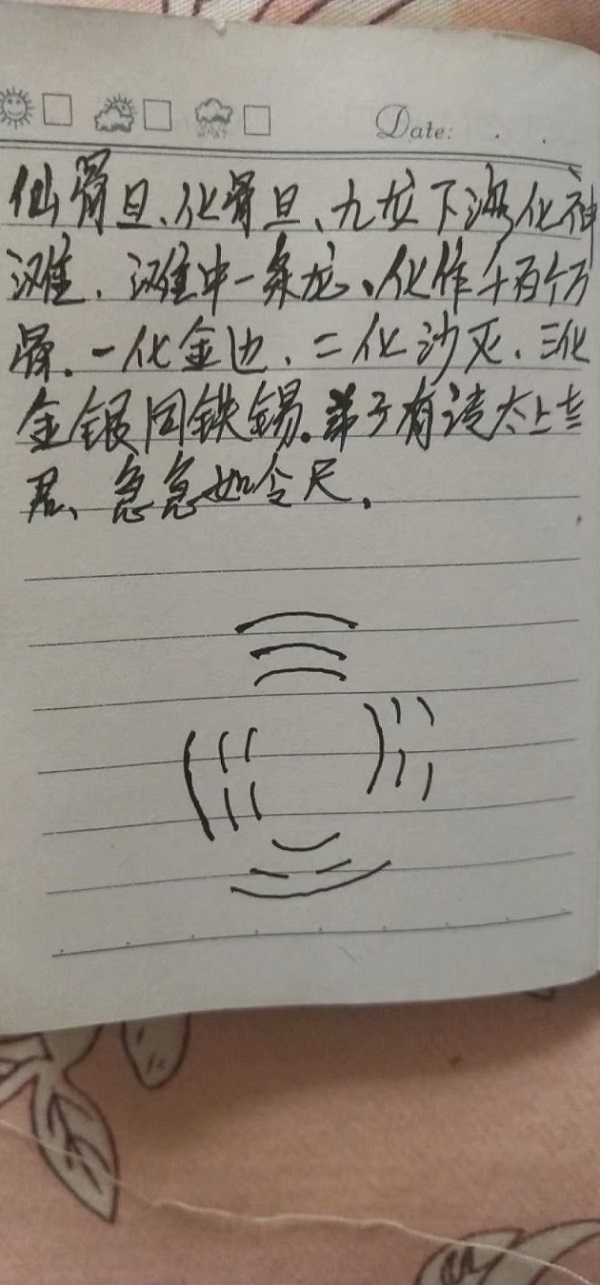 Date:
仙骨旦、化骨旦、九龙下海化神
滩、滩中一条龙、化作千百个万
骨.一化金边、二化沙灭、三化
金银同铁锡。弟子有请太上老
君、急急如令尺.